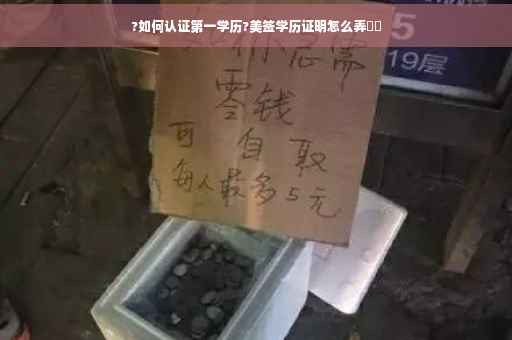 ?如何认证第一学历?美签学历证明怎么弄
如你急需
零钱
可自取
每人最多5元
5
19层